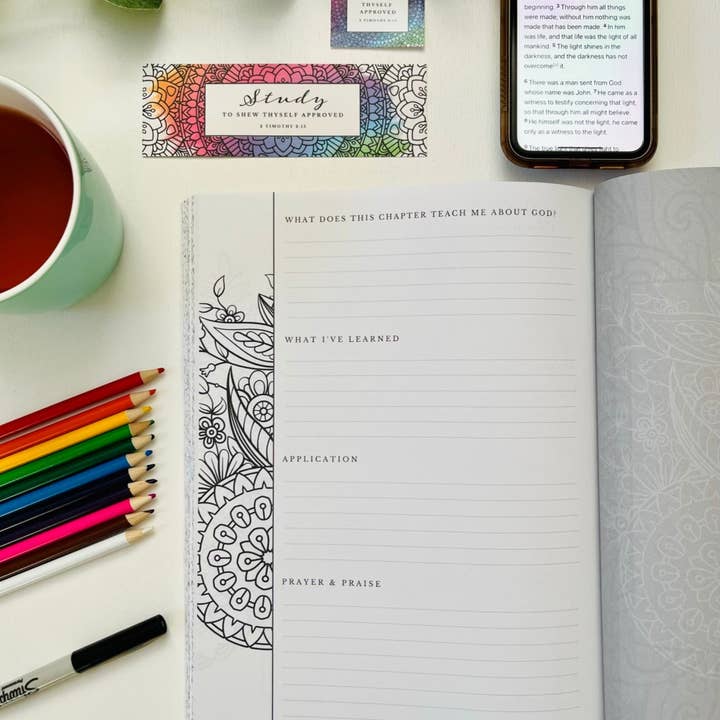 THYSELF
APPROVED
2 TIMOTHY 2:15
Study
TO SHEW THYSELF APPROVED
2 TIMOTHY 2:15
beginning. 3 Through him all things
were made; without him nothing was
made that has been made. 4 In him
was life, and that life was the light of all
mankind. 5 The light shines in the
darkness, and the darkness has not
overcome[a] it.
6 There was a man sent from God
whose name was John. 7 He came as a
witness to testify concerning that light,
so that through him all might believe.
8 He himself was not the light; he came
only as a witness to the light.
9 The true
WHAT DOES THIS CHAPTER TEACH ME ABOUT GOD?
WHAT I'VE LEARNED
APPLICATION
PRAYER & PRAISE
Sharpie